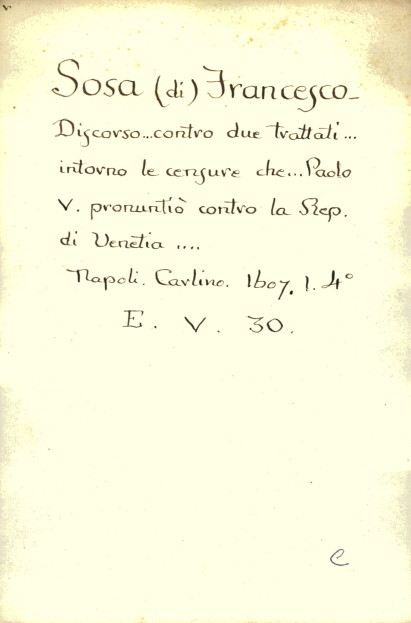 Sosa (di) Francesco_
Discorso...contro due trattati...
intorno le censure che...Paolo
V. pronuntiò contro la Rep.
di Venetia ....
Napoli. Carlino. 1607. 1. 4°
E. V. 30.
C